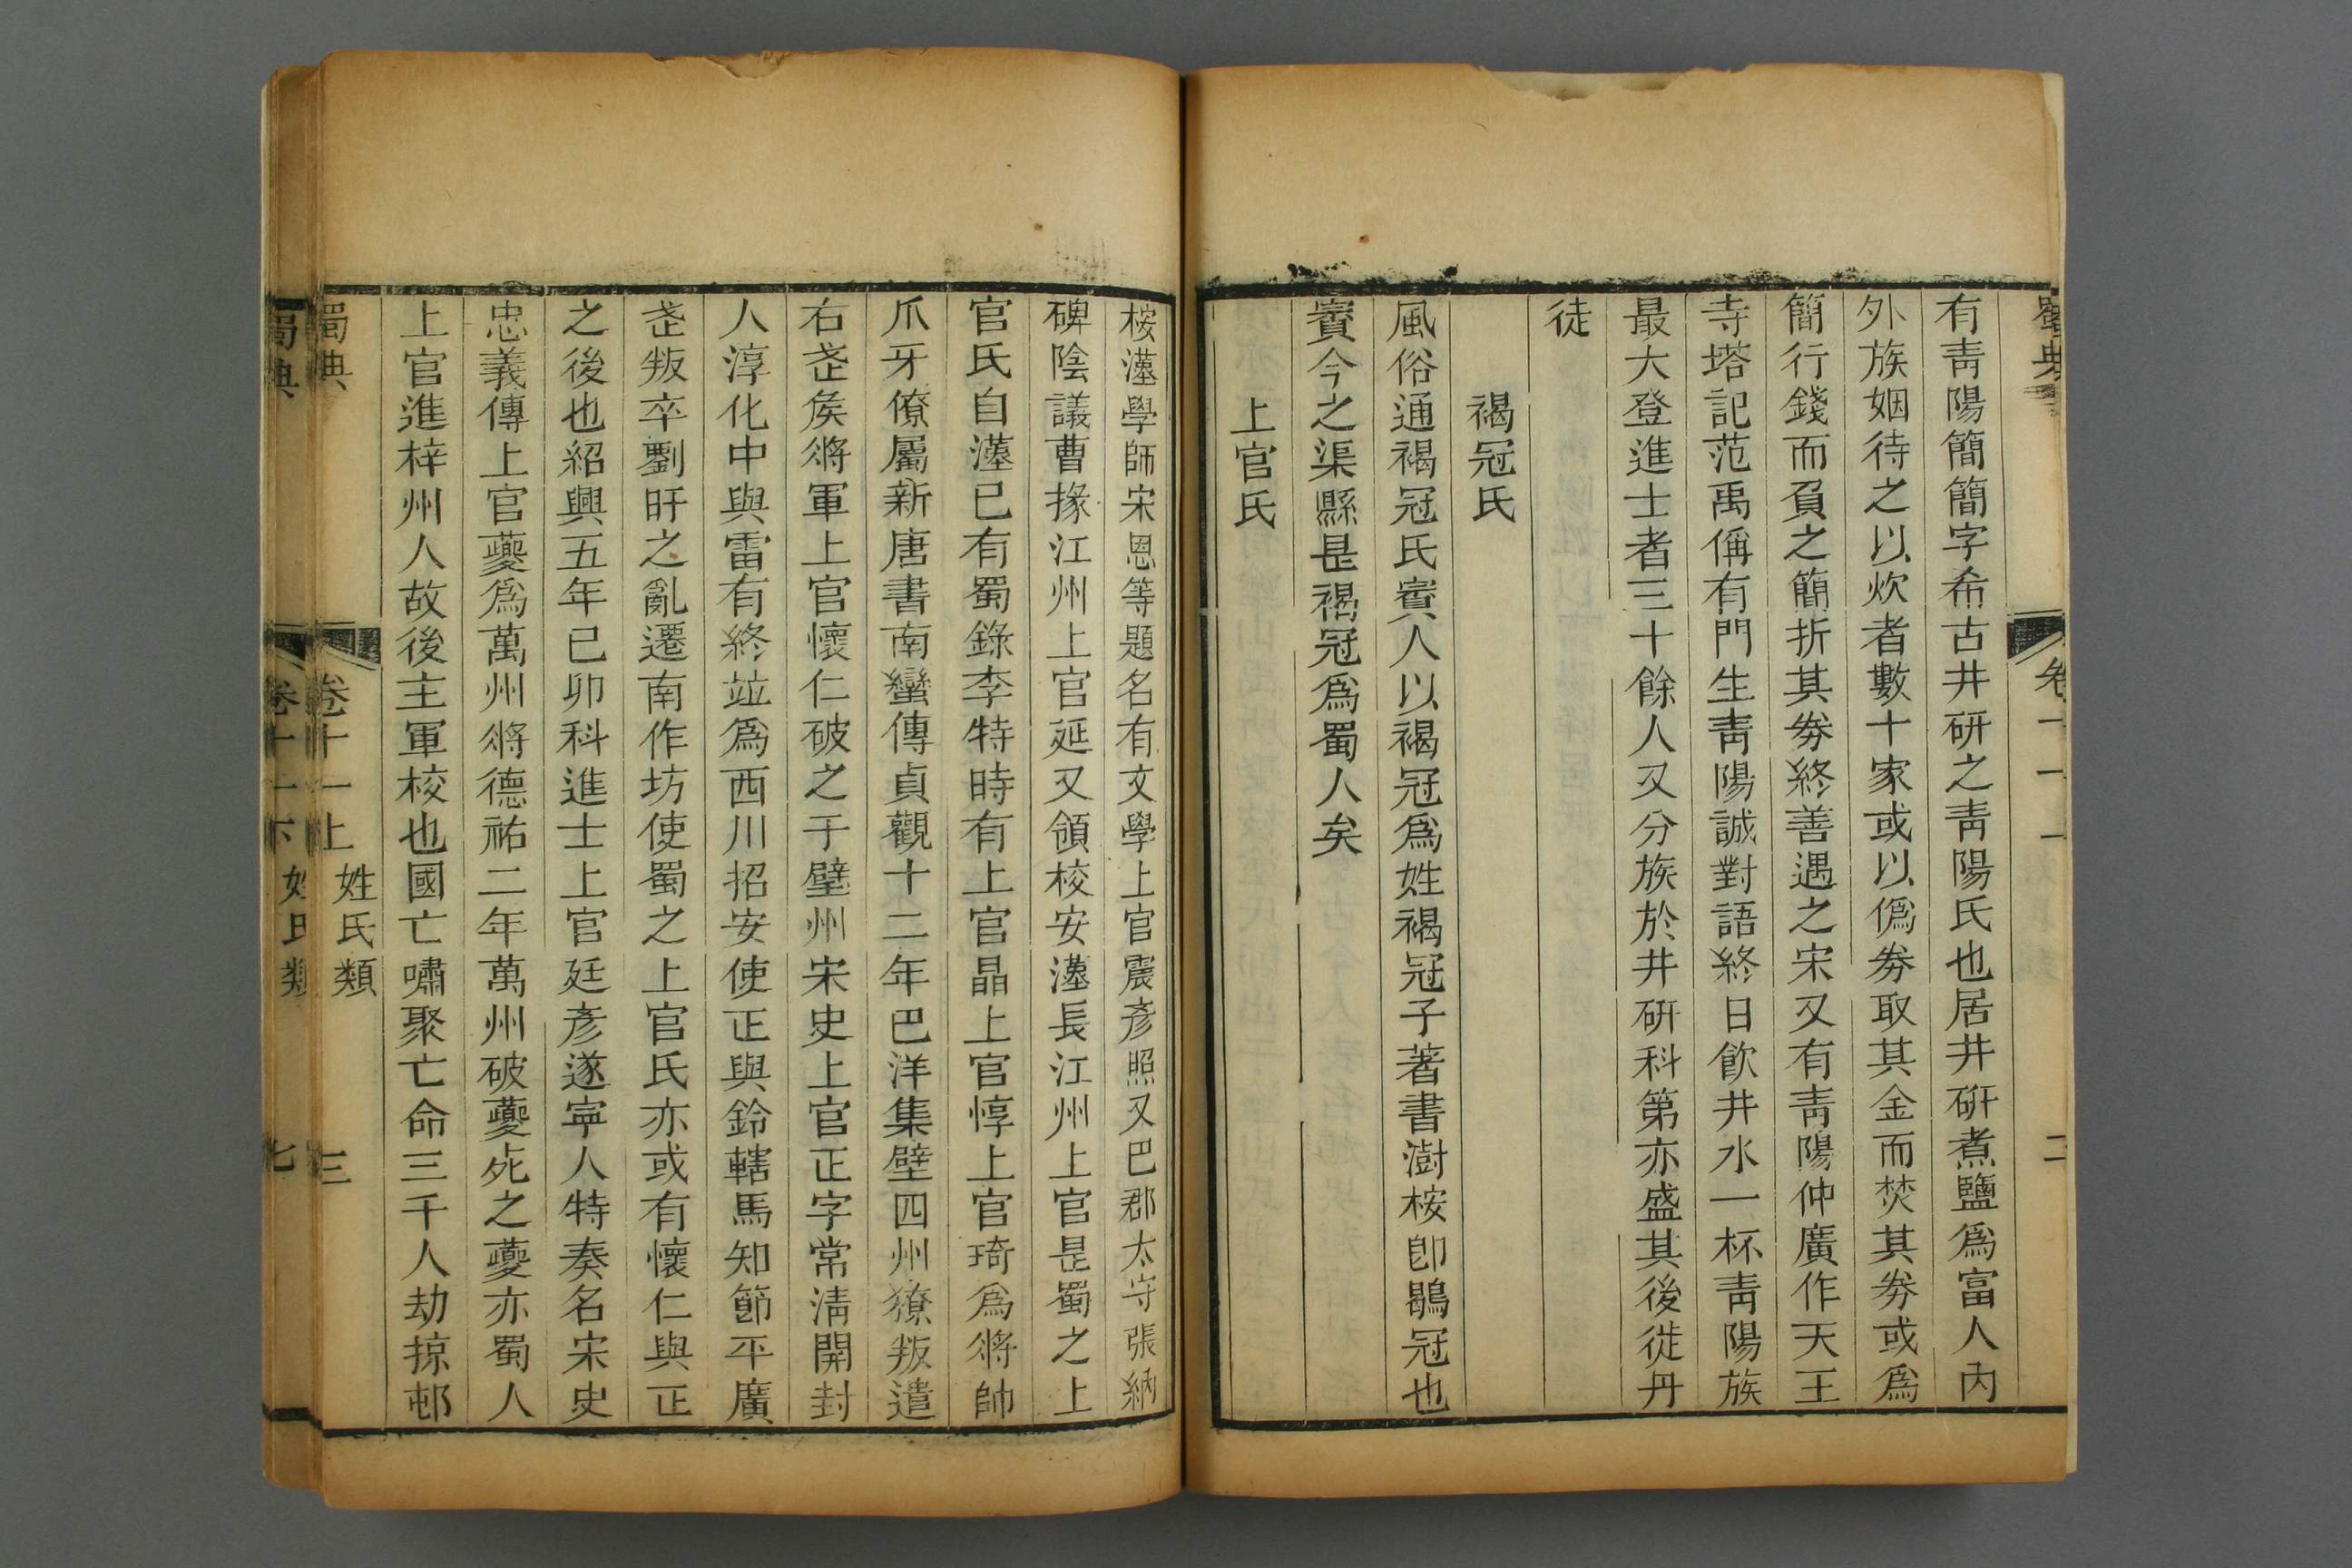 蜀典
卷十一
二
有靑陽簡簡字希古井硏之靑陽氏也居井硏煮鹽爲富人內
外族姻待之以炊者數十家或以僞劵取其金而焚其劵或爲
簡行錢而負之簡折其劵終善遇之宋又有靑陽仲廣作天王
寺塔記范禹偁有門生靑陽誠對語終日飮井水一杯靑陽族
最大登進士者三十餘人又分族於井硏科第亦盛其後從丹
徒
褐冠氏
風俗通褐冠氏賨人以褐冠爲姓褐冠子著書澍桉卽鶡冠也
賨今之渠縣是褐冠爲蜀人矣
上官氏
桉漢學師宋恩等題名有文學上官震彥照又巴郡太守張納
碑陰議曹掾江州上官延又領校安漢長江州上官是蜀之上
官氏自漢已有蜀錄李特時有上官晶上官惇上官琦爲將帥
爪牙僚屬新唐書南蠻傳貞觀十二年巴洋集壁四州獠叛遣
右武侯將軍上官懷仁破之于壁州宋史上官正字常淸開封
人淳化中與雷有終竝爲西川招安使正與鈐轄馬知節平廣
武叛卒劉旰之亂遷南作坊使蜀之上官氏亦或有懷仁與正
之後也紹興五年已卯科進士上官廷彥遂寧人特奏名宋史
忠義傳上官夔爲萬州將德祐二年萬州破夔死之夔亦蜀人
上官進梓州人故後主軍校也國亡嘯聚亡命三千人劫掠邨
蜀典
卷十一上
姓氏類
三
蜀典
卷十一下
姓氏類
七